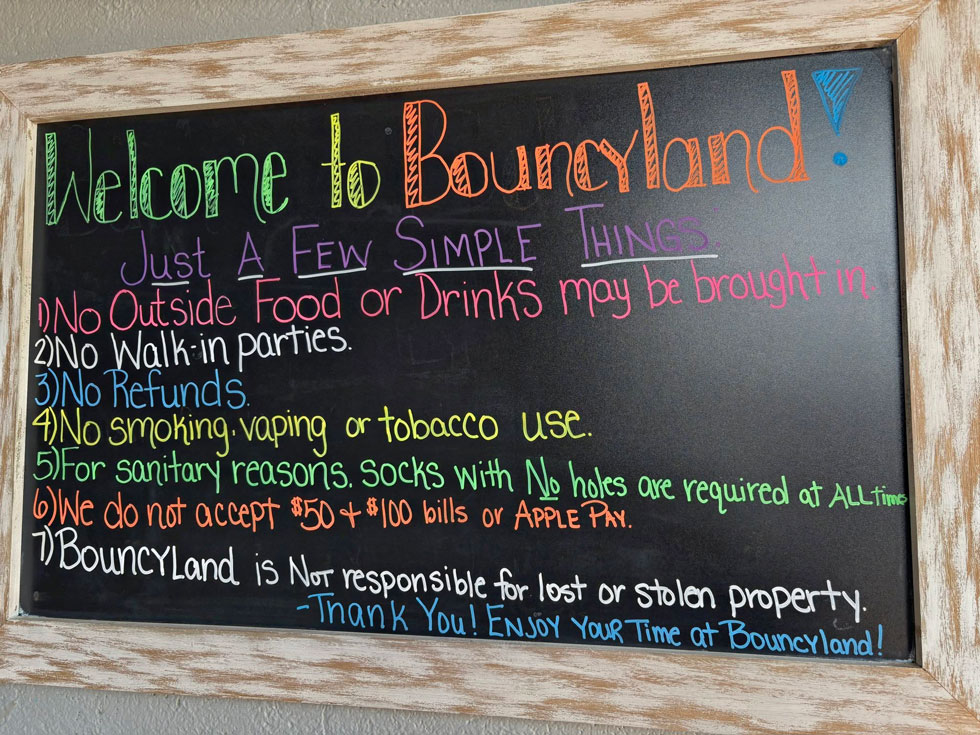 Welcome to Bouncyland!
Just A Few Simple Things:
1) No Outside Food or Drinks may be brought in.
2) No Walk-in parties.
3) No Refunds.
4) No smoking, vaping or tobacco use.
5) For sanitary reasons, socks with No holes are required at ALL times
6) We do not accept $50 + $100 bills or APPLE PAY.
7) BOUNCYLand is NOT responsible for lost or stolen property.
-Thank You! ENJOY YOUR Time at Bouncyland!